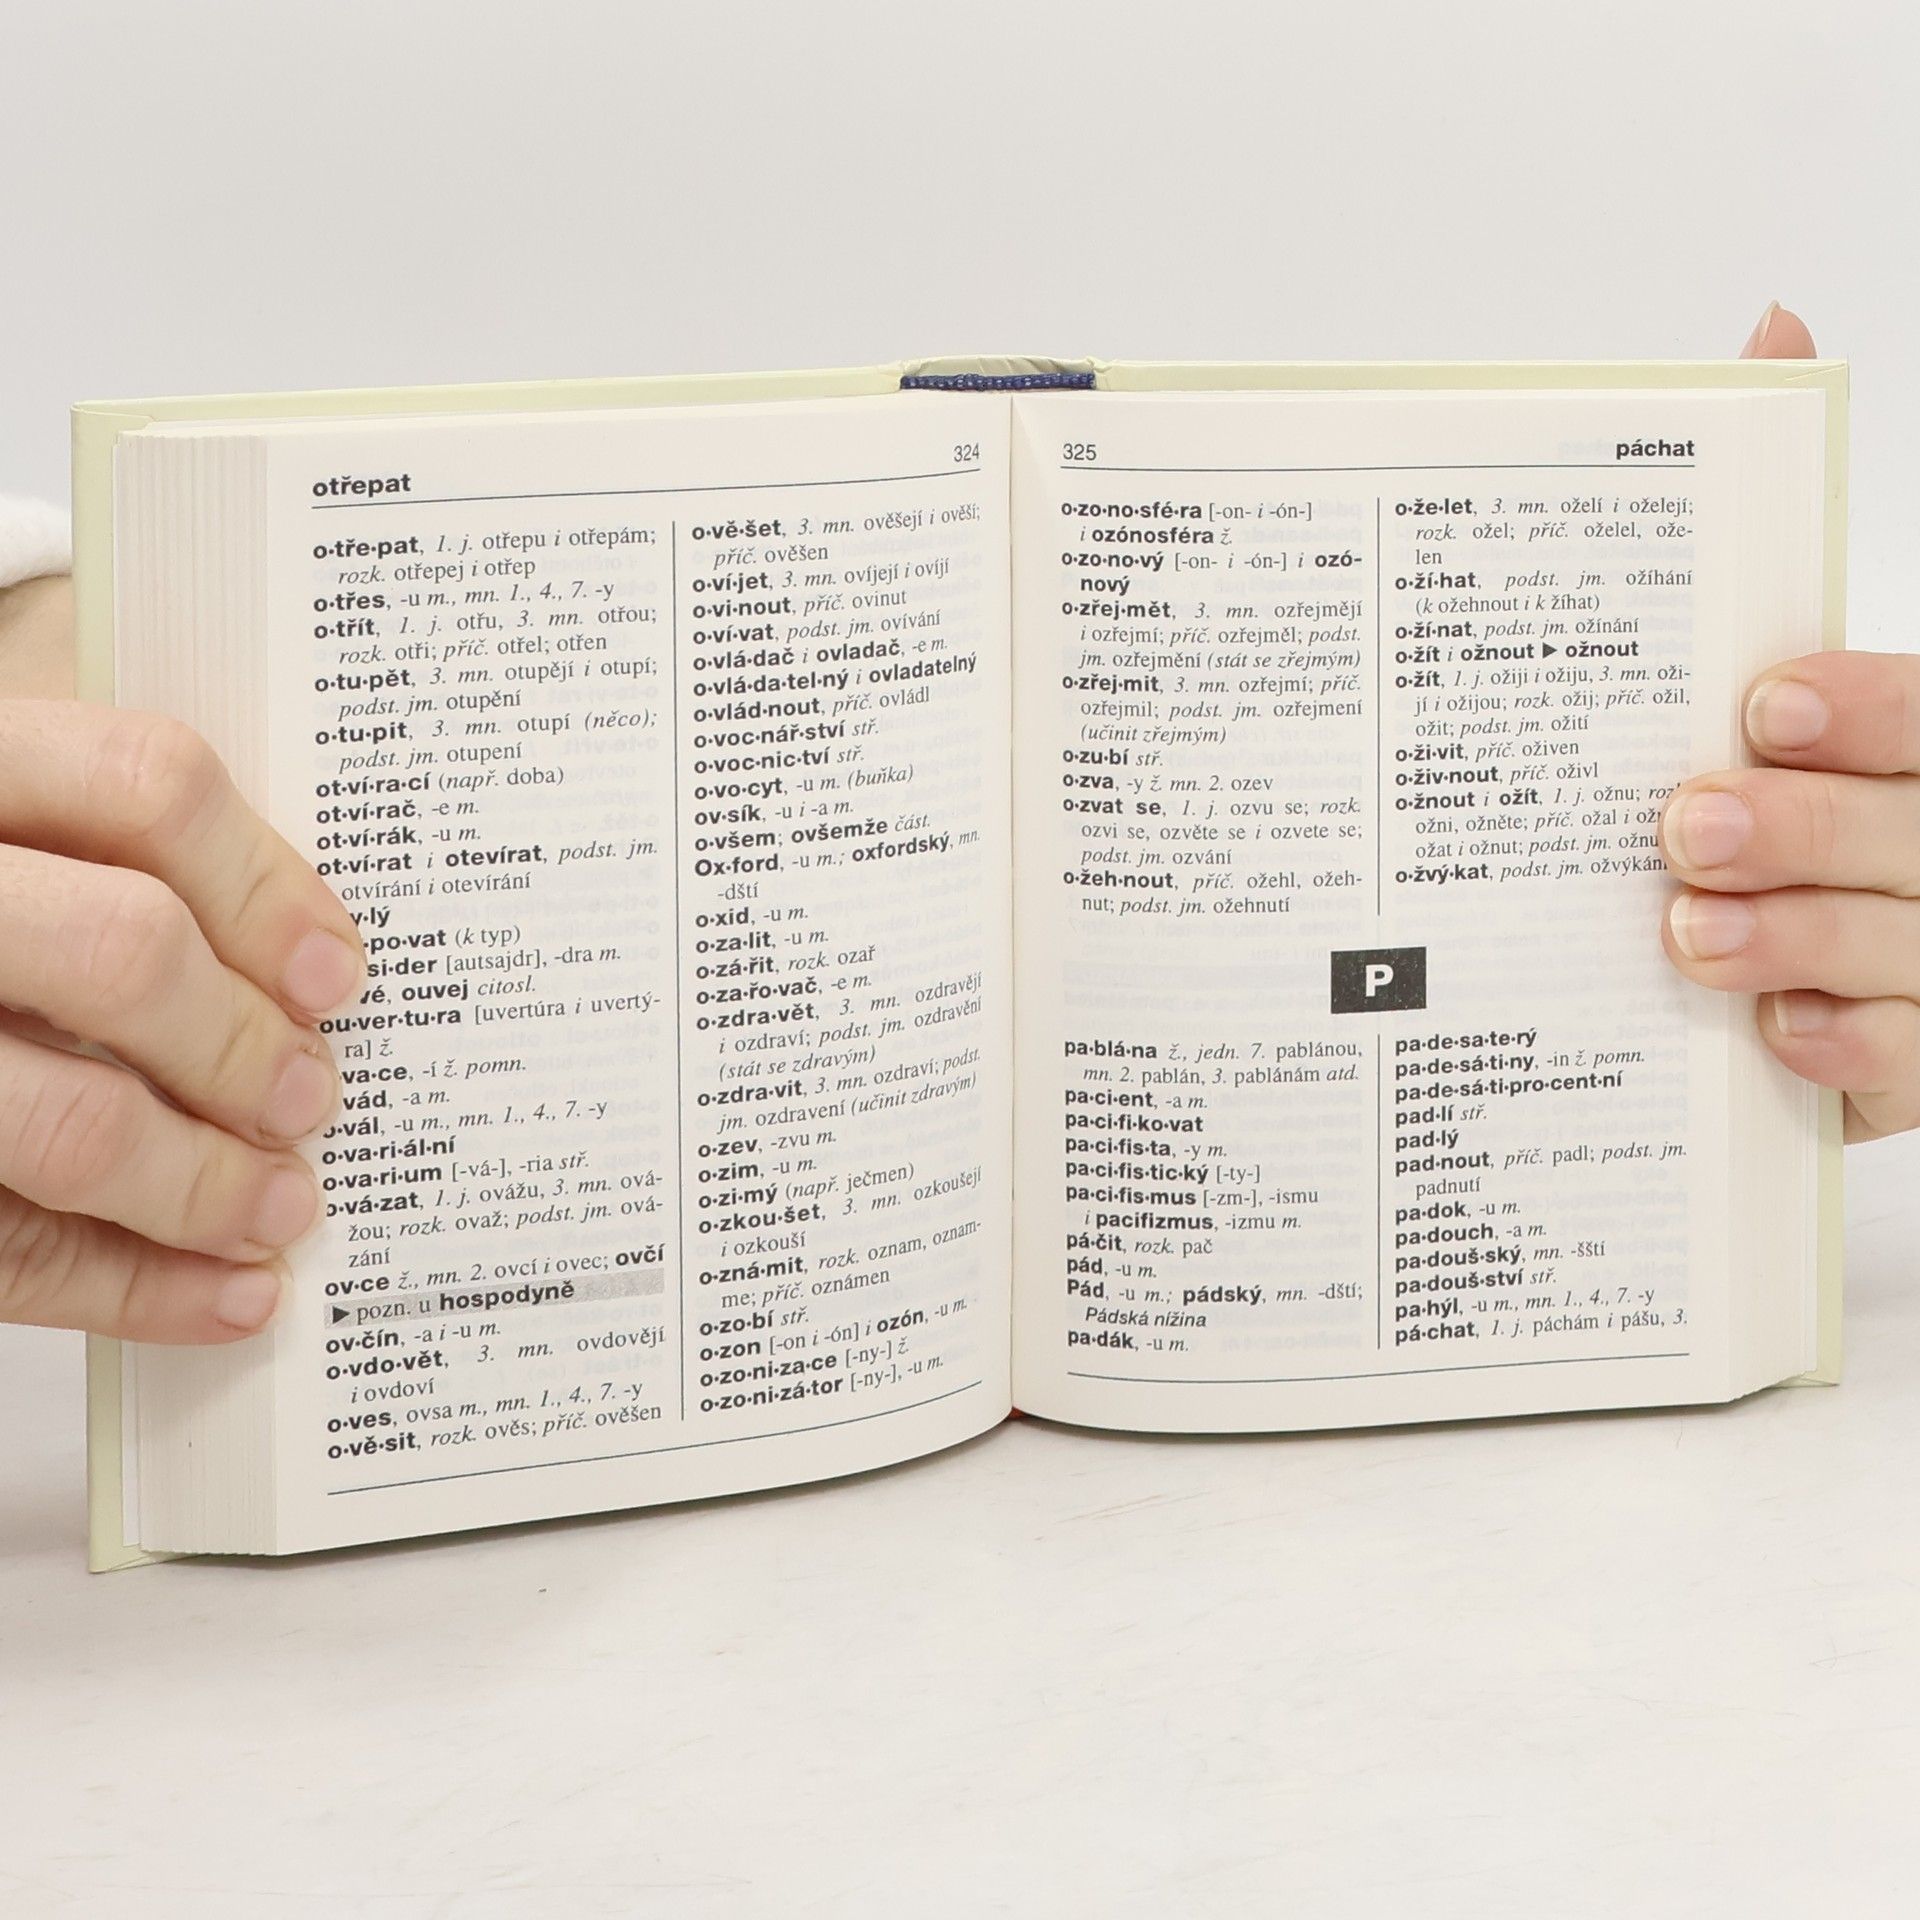 otřepat
324
o·tře·pat, 1. j. otřepu i otřepám;
rozk. otřepej i otřep
o·třes, -u m., mn. 1., 4., 7. -y
o·třít, 1. j. otřu, 3. mn. otřou;
rozk. otři; příč. otřel; otřen
o·tu·pět, 3. mn. otupějí i otupí;
podst. jm. otupění
o·tu·pit, 3. mn. otupí (něco);
podst. jm. otupení
ot·ví·ra·cí (např. doba)
ot·ví·rač, -e m.
ot·ví·rák, -u m.
ot·ví·rat i otevírat, podst. jm.
otvírání i otevírání
y·lý
·po·vat (k typ)
si·der [autsajdr], -dra m.
vé, ouvej citosl.
ou·ver·tu·ra [uvertúra i uvertý-
ra] ž.
va·ce, -í ž. pomn.
vád, -a m.
o·vál, -u m., mn. 1., 4., 7. -y
o·va·ri·ál·ní
o·va·ri·um [-vá-], -ria stř.
o·vá·zat, 1. j. ovážu, 3. mn. ová-
žou; rozk. ovaž; podst. jm. ová-
zání
ov·ce ž., mn. 2. ovcí i ovec; ovčí
► pozn. u hospodyně
ov·čín, -a i -u m.
o·vdo·vět, 3. mn. ovdovějí
i ovdoví
o·ves, ovsa m., mn. 1., 4., 7. -y
o·vě·sit, rozk. ověs; příč. ověšen
o·vě·šet, 3. mn. ověšejí i ověší;
příč. ověšen
o·ví·jet, 3. mn. ovíjejí i ovíjí
o·vi·nout, příč. ovinut
o·ví·vat, podst. jm. ovívání
o·vlá·dač i ovladač, -e m.
o·vlá·da·tel·ný i ovladatelný
o·vlád·nout, příč. ovládl
o·voc·nář·ství stř.
o·voc·nic·tví stř.
o·vo·cyt, -u m. (buňka)
ov·sík, -u i -a m.
o·všem; ovšemže část.
Ox·ford, -u m.; oxfordský, mn.
-dští
o·xid, -u m.
o·za·lit, -u m.
o·zá·řit, rozk. ozař
o·za·řo·vač, -e m.
o·zdra·vět, 3. mn. ozdravějí
i ozdraví; podst. jm. ozdravění
(stát se zdravým)
o·zdra·vit, 3. mn. ozdraví; podst.
jm. ozdravení (učinit zdravým)
o·zev, -zvu m.
o·zim, -u m.
o·zi·mý (např. ječmen)
o·zkou·šet, 3. mn. ozkoušejí
i ozkouší
o·zná·mit, rozk. oznam, oznam-
me; příč. oznámen
o·zo·bí stř.
o·zon [-on i -ón] i ozón, -u m.
o·zo·ni·za·ce [-ny-] ž.
o·zo·ni·zá·tor [-ny-], -u m.
325
páchat
o·zo·no·sfé·ra [-on- i -ón-]
i ozónosféra ž.
o·zo·no·vý [-on- i -ón-] i ozó-
nový
o·zřej·mět, 3. mn. ozřejmějí
i ozřejmí; příč. ozřejměl; podst.
jm. ozřejmění (stát se zřejmým)
o·zřej·mit, 3. mn. ozřejmí; příč.
ozřejmil; podst. jm. ozřejmení
(učinit zřejmým)
o·zu·bí stř.
o·zva, -y ž. mn. 2. ozev
o·zvat se, 1. j. ozvu se; rozk.
ozvi se, ozvěte se i ozvete se;
podst. jm. ozvání
o·žeh·nout, příč. ožehl, ožeh-
nut; podst. jm. ožehnutí
o·že·let, 3. mn. oželí i oželejí;
rozk. ožel; příč. oželel, ože-
len
o·ží·hat, podst. jm. ožíhání
(k ožehnout i k žíhat)
o·ží·nat, podst. jm. ožínání
o·žít i ožnout ► ožnout
o·žít, 1. j. ožiji i ožiju, 3. mn. oži-
jí i ožijou; rozk. ožij; příč. ožil,
ožit; podst. jm. ožití
o·ži·vit, příč. oživen
o·živ·nout, příč. oživl
o·žnout i ožít, 1. j. ožnu; roz
ožni, ožněte; příč. ožal i ož
ožat i ožnut; podst. jm. ožnu
o·žvý·kat, podst. jm. ožvýkán
P
pa·blá·na ž., jedn. 7. pablánou,
mn. 2. pablán, 3. pablánám atd.
pa·ci·ent, -a m.
pa·ci·fi·ko·vat
pa·ci·fis·ta, -y m.
pa·ci·fis·tic·ký [-ty-]
pa·ci·fis·mus [-zm-], -ismu
i pacifizmus, -izmu m.
pá·čit, rozk. pač
pád, -u m.
Pád, -u m.; pádský, mn. -dští;
Pádská nížina
pa·dák, -u m.
pa·de·sa·te·rý
pa·de·sá·ti·ny, -in ž. pomn.
pa·de·sá·ti·pro·cent·ní
pad·lí stř.
pad·lý
pad·nout, příč. padl; podst. jm.
padnutí
pa·dok, -u m.
pa·douch, -a m.
pa·douš·ský, mn. -šští
pa·douš·ství stř.
pa·hýl, -u m., mn. 1., 4., 7. -y
pá·chat, 1. j. páchám i pášu, 3.